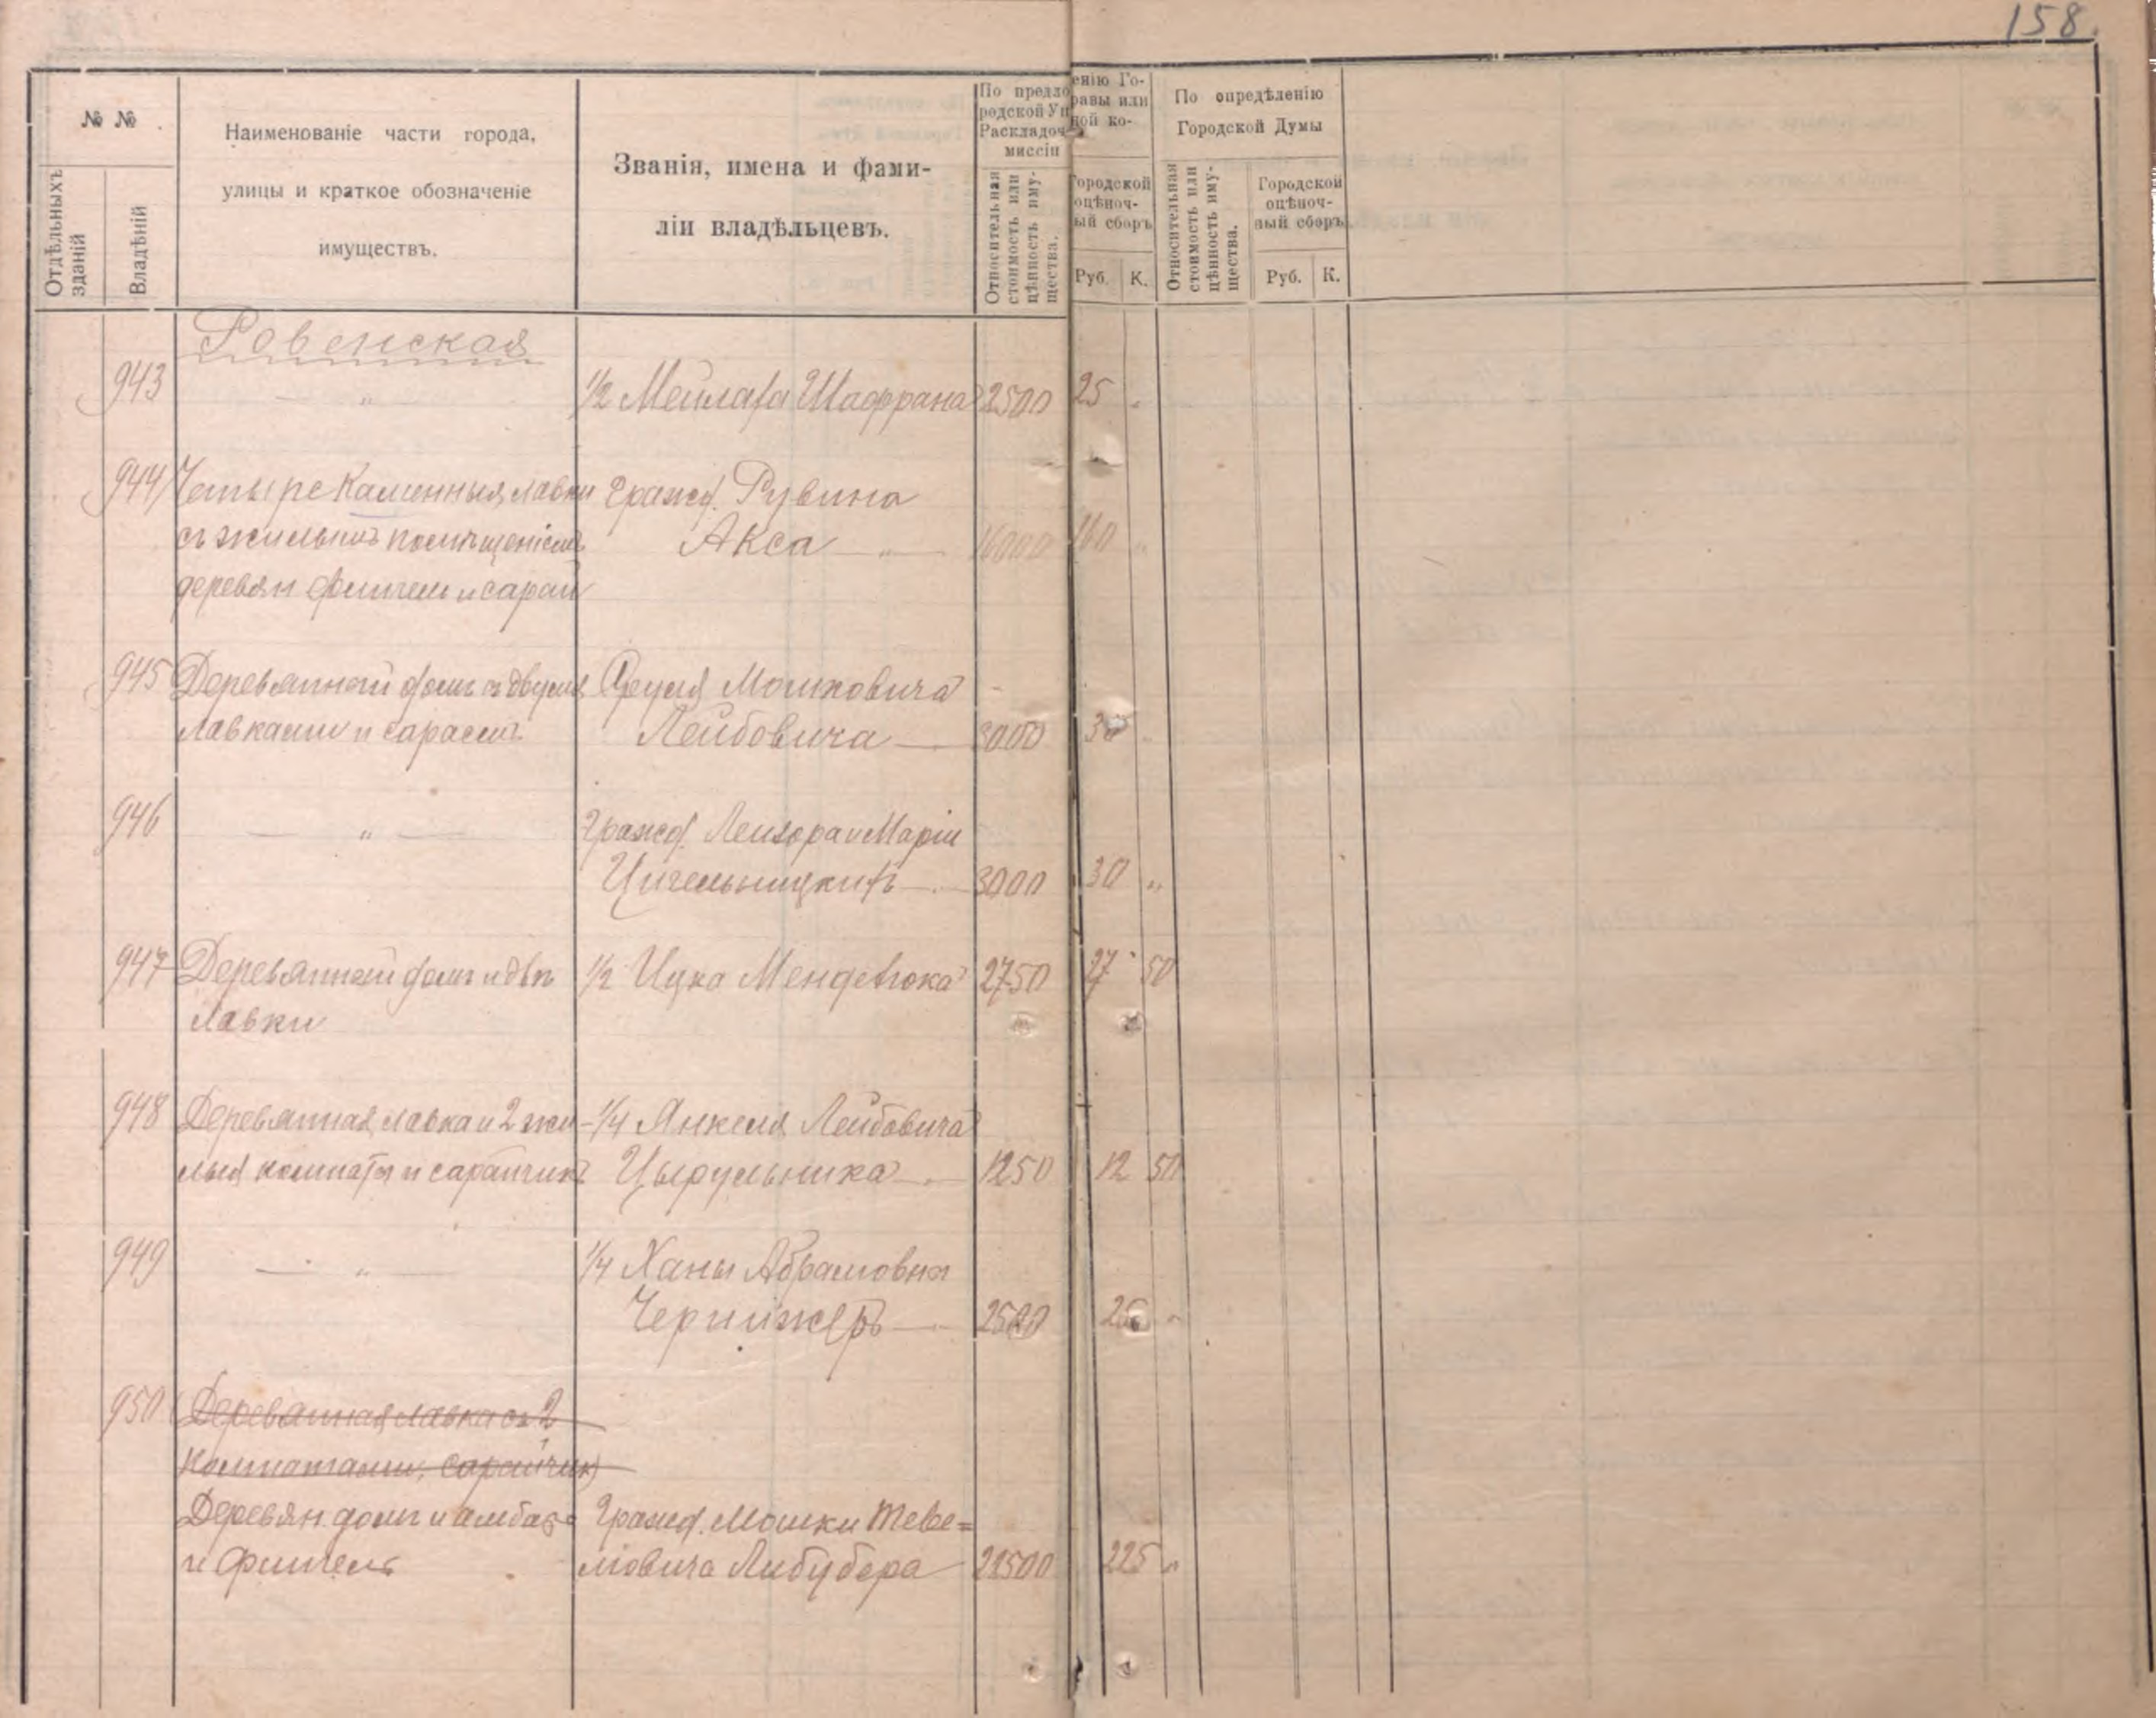 158.
№ №
Отдѣльныхъ зданій
Владѣній
Наименованіе части города,
улицы и краткое обозначеніе
имуществъ.
Званія, имена и фами-
ліи владѣльцевъ.
По предло
родской Уп
Расклaдоч
миссіи
енію Го-
равы или
ной ко-
Относительная стоимость или цѣнность иму- щества.
Городской
оцѣноч-
ый сборъ
Руб. К.
По опредѣленію
Городской Думы
Относительная стоимость или цѣнность иму- щества.
Городской
оцѣноч-
ный сборъ
Руб. К.
Ровенская
943 — „ 1/2 Мейлаха Шафрана 2500 25 „
944 Четыре каменныя лавки гражд. Рувина
съ жилымъ помѣщеніемъ Акса — „ — 16000 160 „
деревян флигель и сарай
945 Деревянный домъ съ двумя Сруля Мошковича
лавками и сараемъ Лейбовича — 3000 30 „
946 — „ — гражд. Лейзора и Маріи
Цигельницкихъ — 3000 30 „
947 Деревянный домъ и двѣ 1/2 Ицка Менделюка 2750 27 50
лавки
948 Деревянная лавка и 2 жи- 1/4 Янкеля Лейбовича
лыя комнаты и сарайчикъ Цырульника — 1250 12 50
949 — „ — 1/4 Ханы Абрамовны
2500 25 „
950 Деревянная лавка съ 2
комнатами, сарайчик
Деревян. домъ и амбаръ гражд. Мошки Теве=
и флигель ліовича Либубера 22500 225 „